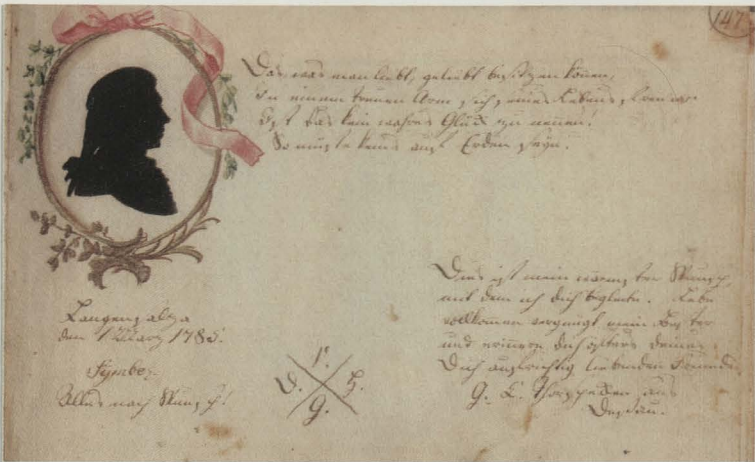 147
Das, was man liebt, geliebt besitzen können,
In einem treuen Arm sich seines Lebens
Ist das kein wahres Glück zu nennen!
So müste keins auf Erden seyn.
Dies ist mein Wunsch,
mit dem ich dich begleite. Lebe
vollkommen vergnügt mein Bester
und erinnere dich öfters deines
Dich aufrichtig liebenden Freundes
G. L. aus
Dessau.
Langensalza
den 1 März 1785.
Symb:
Alles nach Wunsch!